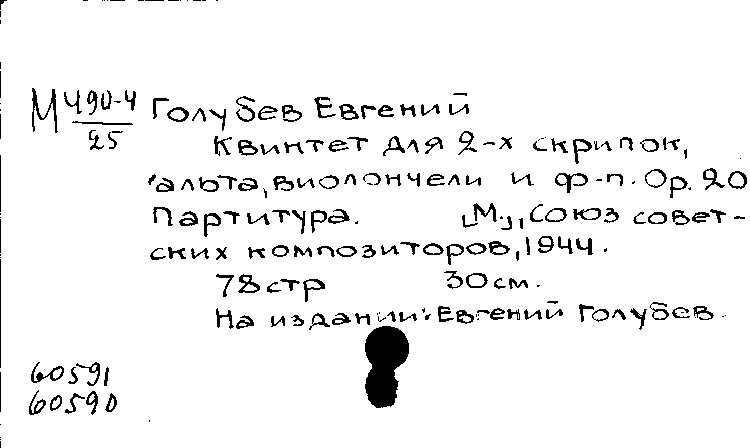 М 490-4 Голубев Евгений
25
Квинтет для 2-х скрипок,
альта, виолончели и ф-п. Op. 20
Партитура. [М.], Союз совет-
ских композиторов, 1944.
78 стр 30 см.
На издании: Евгений Голубев.
60591
60590